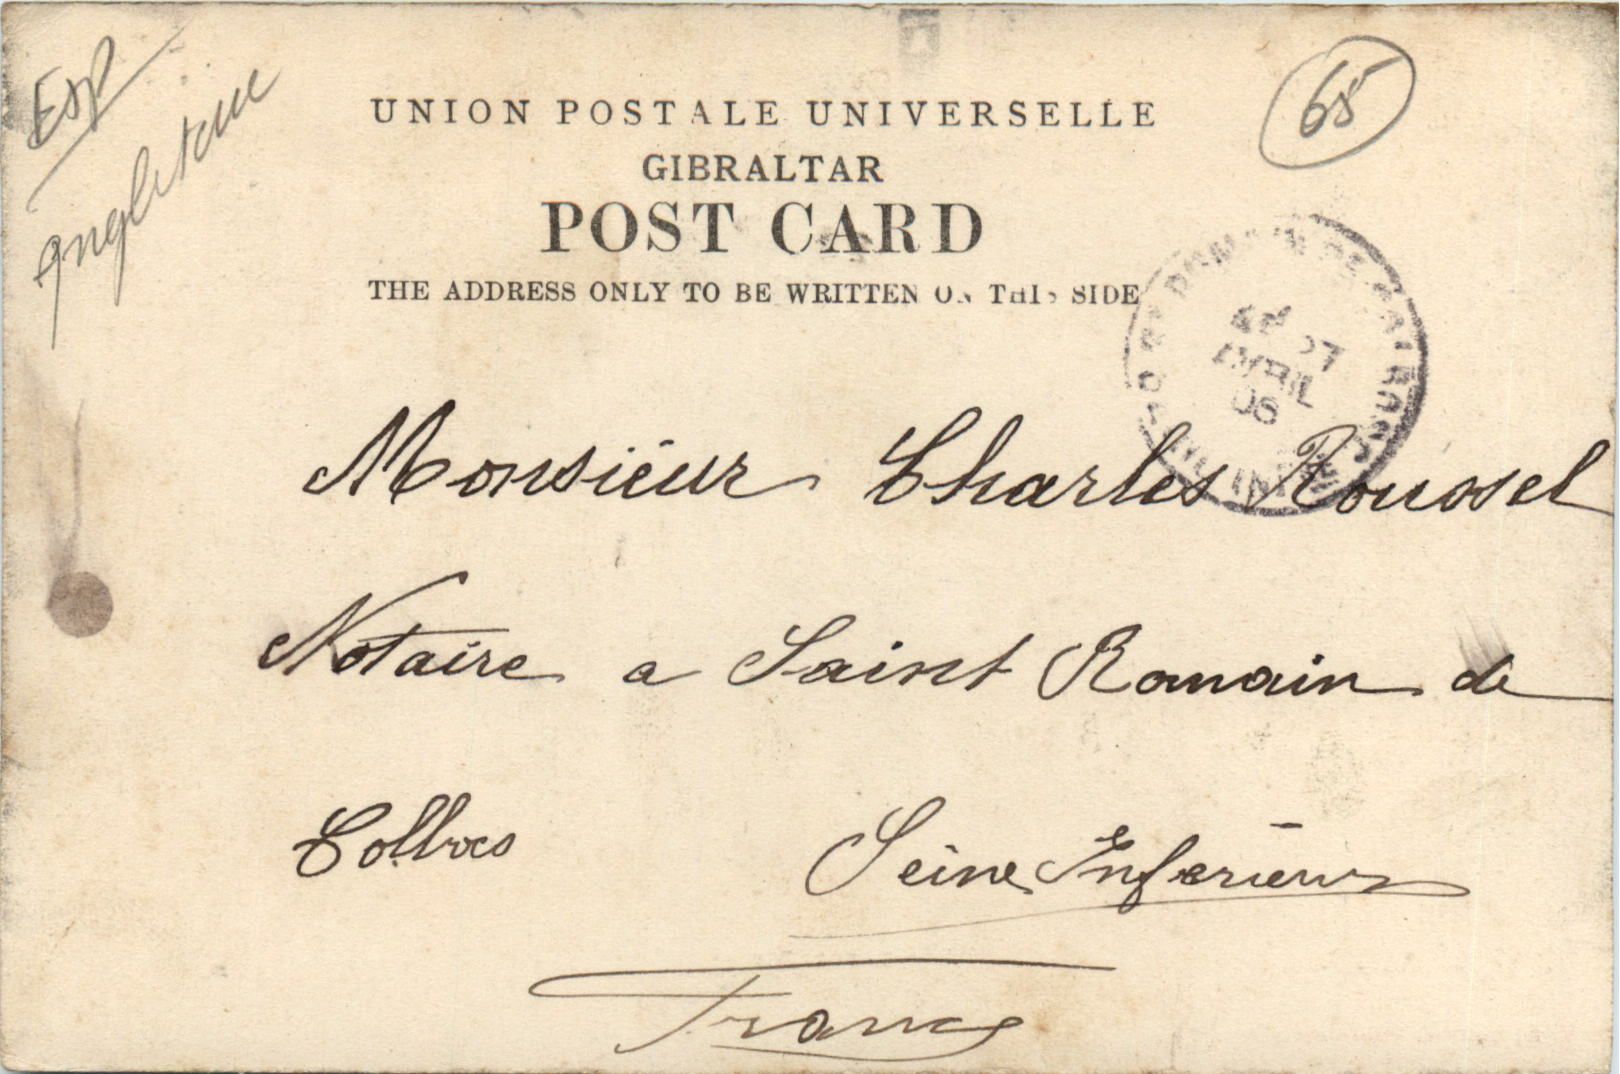 Esp
Angleterre
65
UNION POSTALE UNIVERSELLE
GIBRALTAR
POST CARD
THE ADDRESS ONLY TO BE WRITTEN ON THIS SIDE
07
AVRIL
06
Monsieur Charles Roussel
Notaire a Saint Romain de
Colbosc Seine Inferieure
France